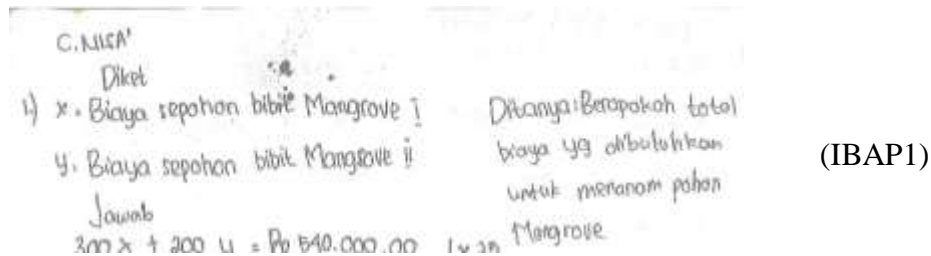 C. NISA'
Diket
1) x. Biaya sepohon bibit Mangrove i
y. Biaya sepohon bibit Mangrove ii
Jawab
300 x + 200 y = Rp 540.000,00
Ditanya: Berapakah total
biaya yg dibutuhkan
untuk menanam pohon
Mangrove
(IBAP1)